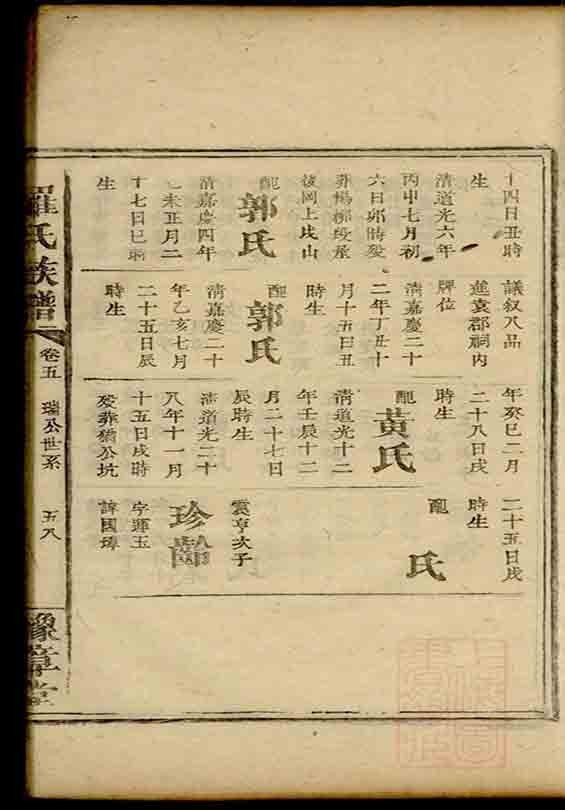 十四日丑時
生
清道光六年
丙申七月初
六日卯時殁
葬楊柳段承
後岡上戌山
配
郭氏
清嘉慶四年
己未正月二
十七日巳時
生
議叙八品
進袁郡祠內
牌位
清嘉慶二十
二年丁丑十
月十五日丑
時生
配
郭氏
清嘉慶二十
年乙亥七月
二十五日辰
時生
年癸巳二月
二十八日戌
時生
配
黃氏
清道光十二
年壬辰十二
月二十七日
辰時生
清道光二十
八年十一月
十五日戌時
殁葬猶公坑
二十五日戌
時生
配
氏
震亨次子
珍齡
字運玉
諱國璋
羅氏族譜
卷五
瑞公世系
五八
豫章堂